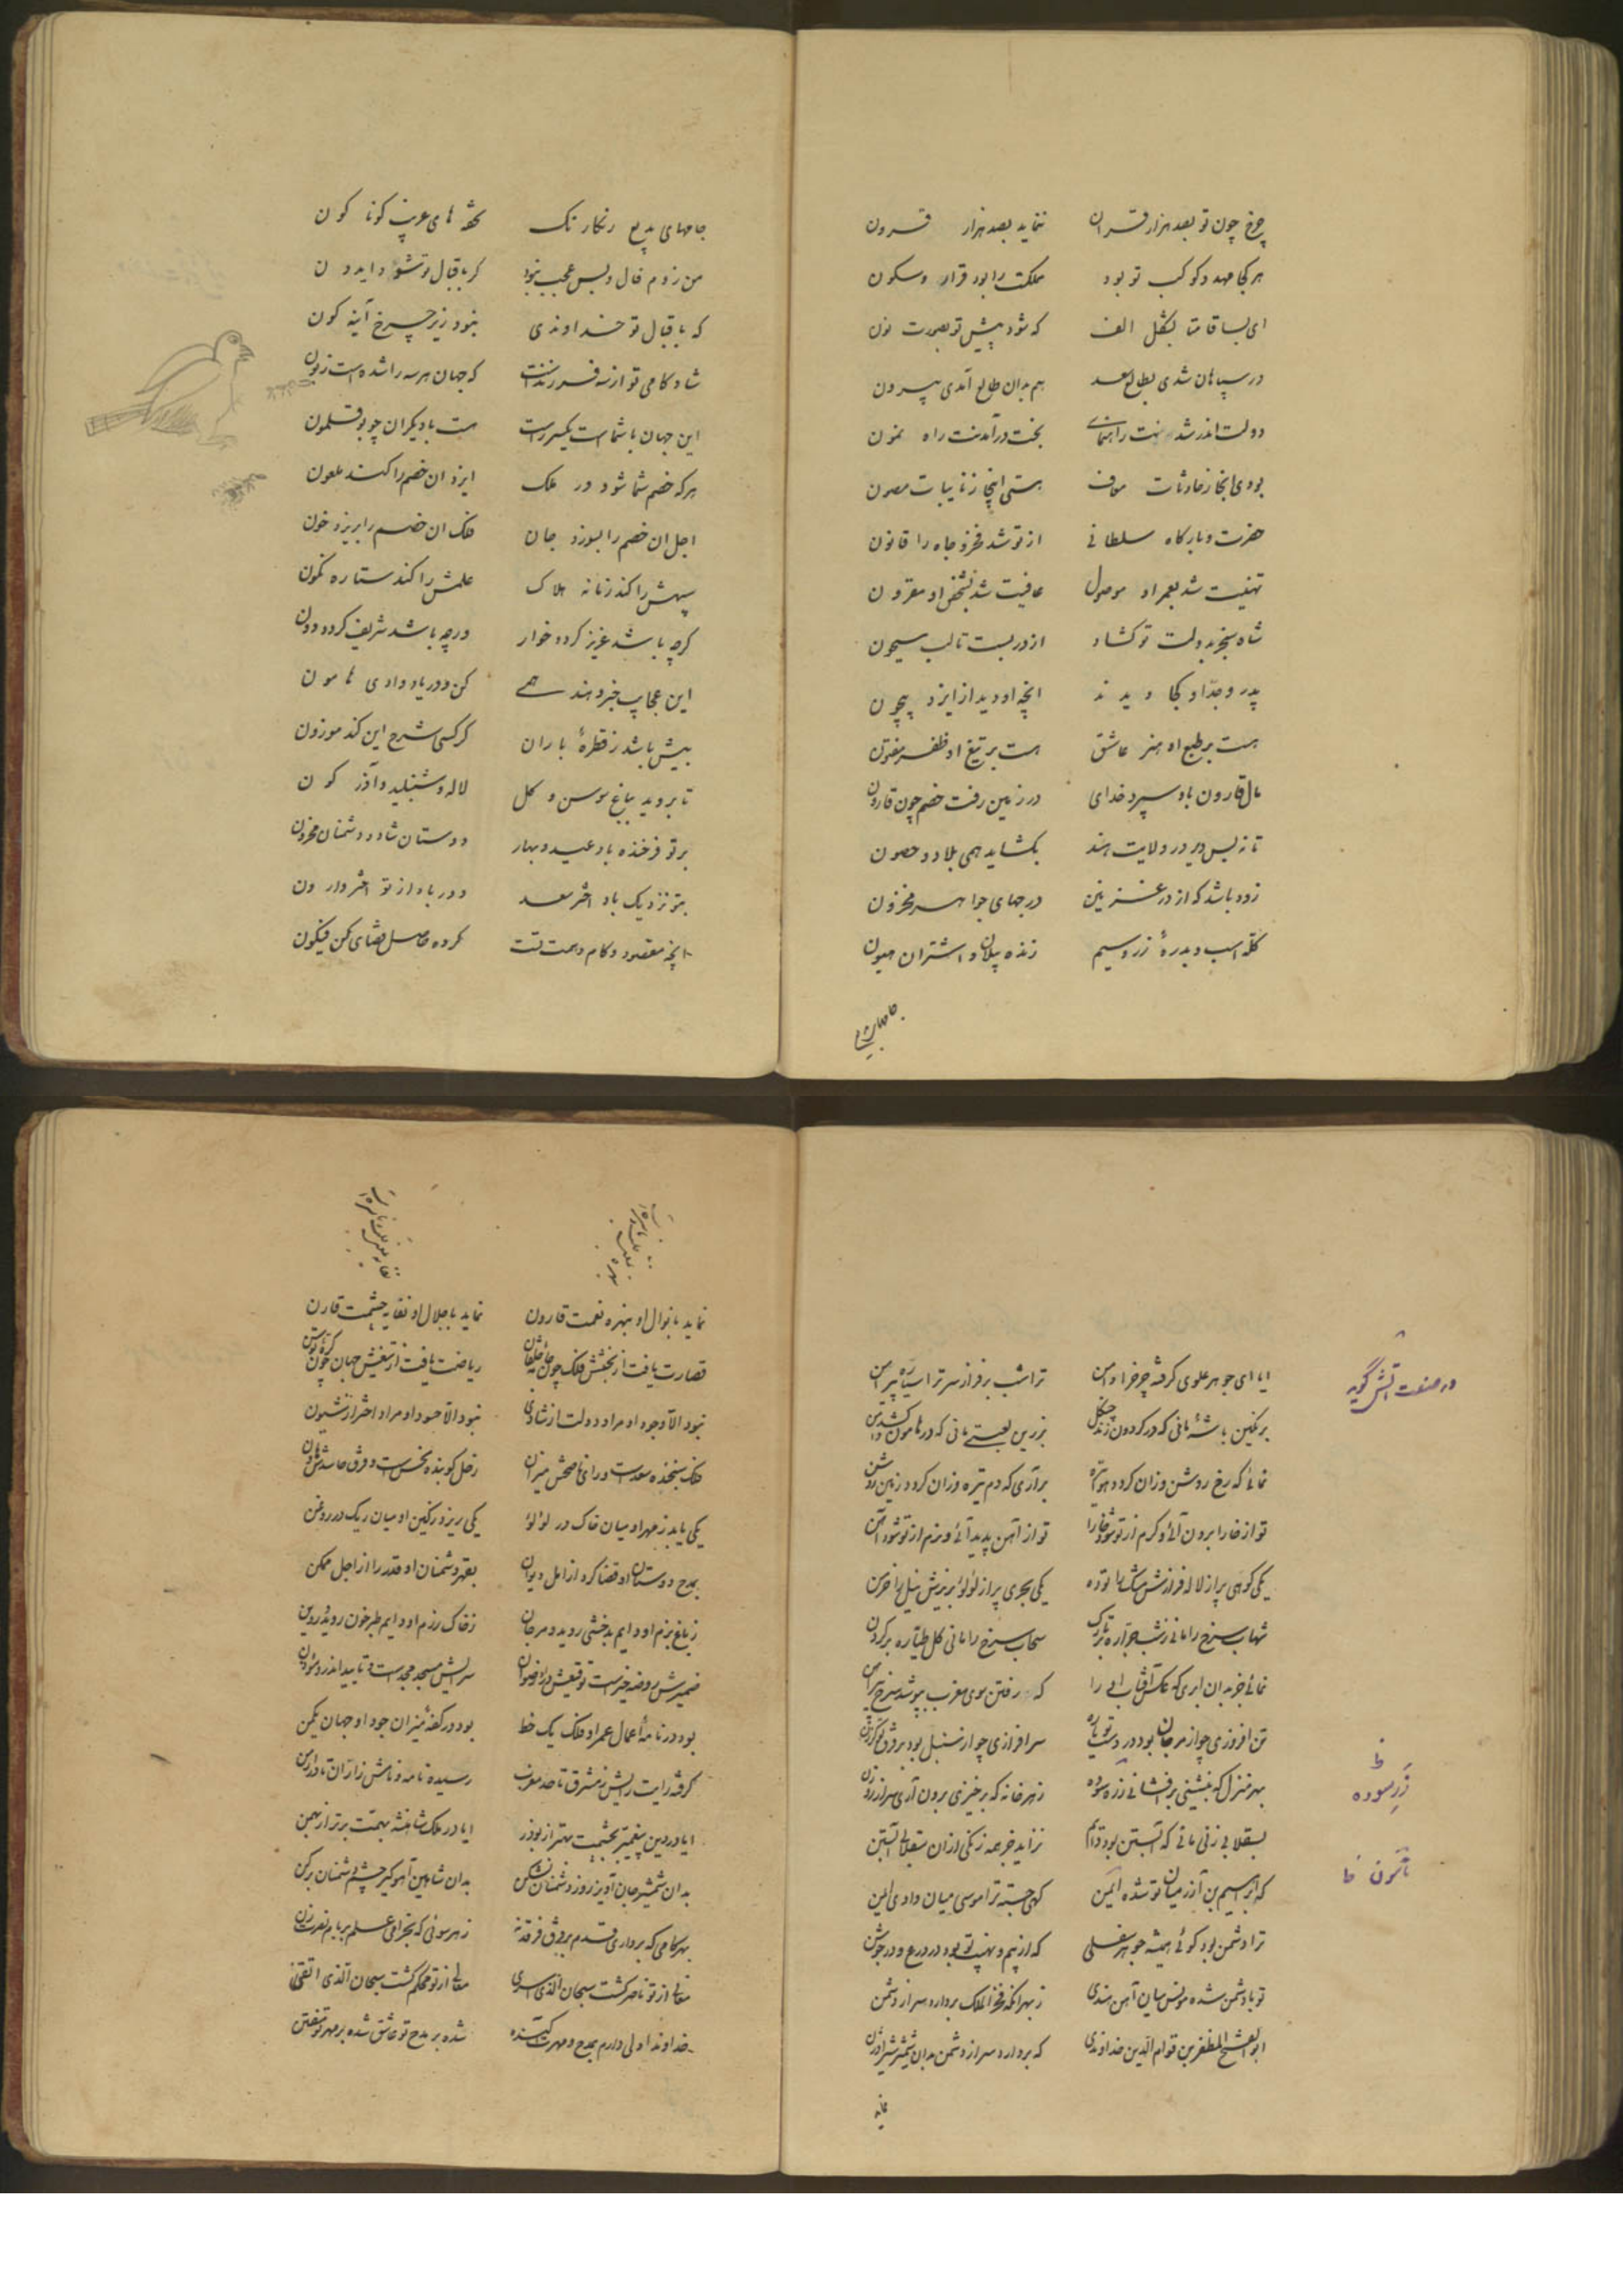 چرخ چون تو بصد هزار قران ننماید بصد هزار قرون
هر کجا مهد و کوکب تو بود مملکت را بود قرار و سکون
ای بسا قامتا بشکل الف که شود پیش تو بصورت نون
در سپاهان شدی بطالع سعد هم بدان طالع آمدی بیرون
دولت اندر شدنت راهنمای بخت در آمدنت راه نمون
بودی انجا ز حادثات معاف هستی اینجا ز نایبات مصون
حضرت و بارگاه سلطانی از تو شد فخر و جاه را قانون
تهنیت شد بعمر او موصول عافیت شد بشخص او مقرون
شاه سنجر بدولت تو کشاد از در بست تا لب سیحون
پدر و جد او کجا دیدند انچه او دید از ایزد بیچون
هست بر طبع او هنر عاشق هست بر تیغ او ظفر مفتون
مال قارون باو سپرد خدای در زمین رفت خصم چون قارون
تا نه بس دیر در ولایت هند بکشاید همی بلاد و حصون
زود باشد که از در غزنین درجهای جواهر مخزون
گله اسب و بدرهٔ زر و سیم زنده پیلان و اشتران هیون
جامهای بدیع رنکارنک تحفه های عریب کونا کون
من زدم فال و بس عجب نبود کر باقبال تو شود ایدون
که باقبال تو خداوندی نبود زیر چرخ آینه کون
شادکامی تو از سه فرزندست که جهان هر سه را شده است زبون
این جهان با شماست یکسر راست هست با دیکران چو بوقلمون
هرکه خصم شما شود در ملک ایزد ان خصم را کند ملعون
اجل ان خصم را بسوزد جان فلک ان خصم را بریزد خون
سپهش را کند زمانه هلاک علمش را کند ستاره نکون
کرچه باشد عزیز کردد خوار ورچه باشد شریف کردد دون
این عجایب خبر دهند همی کن و دریا و وادی هامون
بیش باشد ز قطرهٔ باران کر کسی شرح این کند موزون
تا بروید بباغ سوسن و کل لاله و شنبلید و آذر کون
بر تو فرخنده باد عید و بهار دوستان شاد و دشمنان محزون
بتو نزدیک باد اختر سعد دور باد از تو اختر وارون
انچه مقصود و کام و همت تست کرده حاصل قضای کن فیکون
در صنعت آتش گوید
ایا ای جوهر علوی گرفته چرخ را دامن تراشب برفراز سر ترا ستاره پیرامن
برنکین باشهٔ مانی که در کردون زند چنکل بزرین لعبتی مانی که در هامون کشد دامن
نمائی که رخ روشن وزان کردد هوا تیره برآری که دم تیره وزان کردد زمین روشن
تو از خارا برون آئی و کرم از تو شود خارا تو از آهن پدید آئی و نرم از تو شود آهن
یکی کوهی پر از لاله فرازش مشک را توده یکی بحری پر از لؤلؤ بزیرش نیل را خرمن
تن افروزی چو از مرجان بود در دست تو یاره سرافرازی چو از سنبل بود بر فرق تو کرزن
بهر منزل که بنشینی برفشانی زر سوده ز هر خانه که برخیزی برون آری سر از روزن
بسقلابی زنی مانی که آبستن بود دایم نزاید جز همه زنکی ازان سقلابی آبستن
که ابرهیم بن آزر میان تو شده ایمن کهی جسته ترا موسی میان وادی ایمن
ترا دشمن بود کوئی همیشه جوهر سفلی که از بیم و نهیب تو بود در درع و در جوشن
تو با دشمن شده مونس میان آهن هندی ز بهر انکه فخر الملک بردارد سر از دشمن
ابوالفتح المظفر بن قوام الدین خداوندی که بردارد سر از دشمن بدان شمشیر شیر اوژن
خا
زر سوده
خا
نماید با نوال او نبهره نعمت قارون نماید با جلال او نفایه حشمت قارن
نبود الا وجود او مراد دولت از شادی نبود الا حسود او مراد اختر از شیون
یکی یابد ز مهر او میان خاک در لؤلؤ یکی ریزد ز کین او میان ریک در روغن
بمدح دوستان او قضا کرد از امل دیوان بقهر دشمنان او قدر را از اجل ممکن
ز باغ بزم او دایم بدخشی روید و مرجان ز خاک رزم او دایم طبرخون روید و روین
بود در نامهٔ اعمال عمر او فلک یک خط بود در کفهٔ میزان جود او جهان یکمن
کرفته رایت رایش ز مشرق تا حد مغرب رسیده نامه و نامش ز اران تا در ارمن
ایا در دین پیغمبر بحشمت بهتر از بوذر ایا در ملک شاهنشه بهمت برتر از بهمن
بدان شمشیر جان آویز روز دشمنان بشکن بدان شاهین آهوکیر چشم دشمنان برکن
بهر کامی که برداری قدم بر فرق فرقد نه ز هر سوئی که بخرامی علم بر بام نصرت زن
معالی از تو ناصر کشت سبحان الذی اسری معالی از تو محکم کشت سبحان الذی اتقن
خداوندا دلی دارم بمدح و مهرت آکنده شده بر مدح تو عاشق شده بر مهر تو مفتن